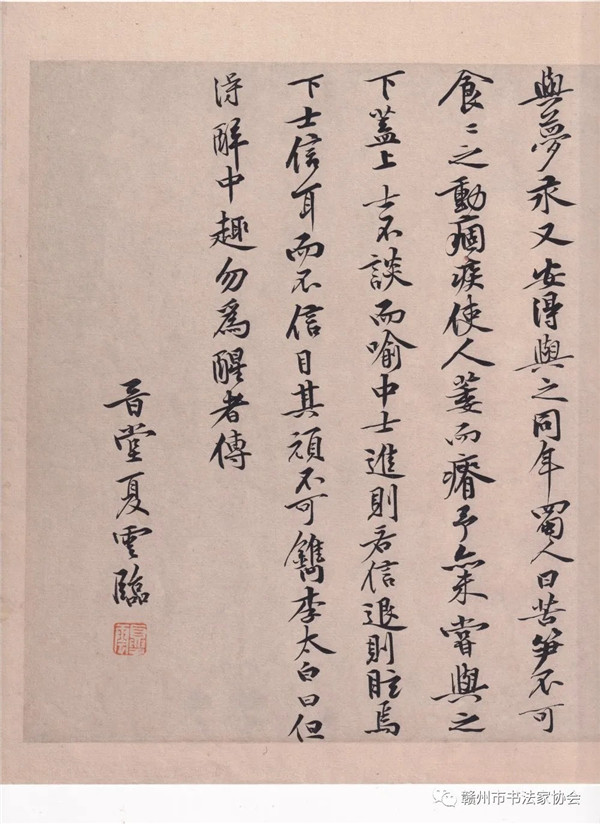 與夢永又安得與之同年蜀人曰苦笋不可
食〻之動痼疾使人萎而瘠予亦未嘗與之
下蓋上士不談而喻中士進則若信退則眩焉
下士信耳而不信目其頑不可鐫李太白曰但
得醉中趣勿為醒者傳
堂夏雲臨
赣州市书法家协会